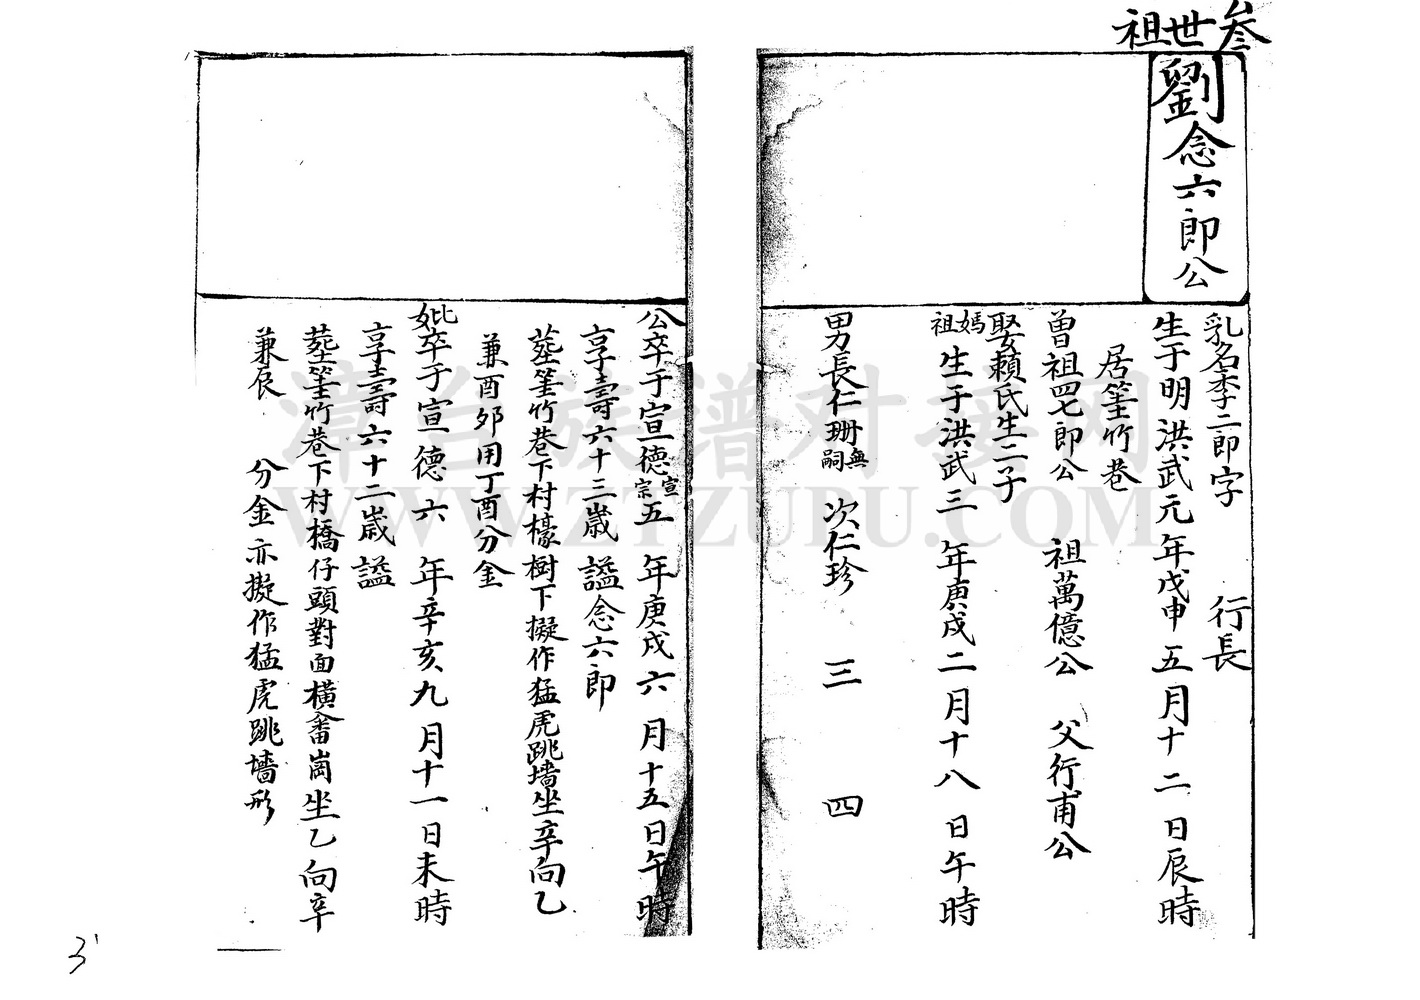 叁世祖
劉念六郎公
乳名李二郎字 行長
生于明洪武元年戊申五月十二日辰時
居筀竹巷
曾祖四七郎公 祖萬億公 父行甫公
娶賴氏生二子
祖媽生于洪武三年庚戌二月十八日午時
男長仁珊無嗣 次仁珍 三 四
公卒于宣德宣宗五年庚戌六月十五日午時
享壽六十三歲謚念六郎
塟筀竹巷下村檺樹下擬作猛虎跳墻坐辛向乙
兼酉夘用丁酉分金
妣卒于宣德六年辛亥九月十一日未時
享壽六十二歲謚
塟筀竹巷下村橋仔頭對面橫畬崗坐乙向辛
兼辰 分金亦擬作猛虎跳墻形
3
漳台族谱对接网
WWW.ZTZUPU.COM